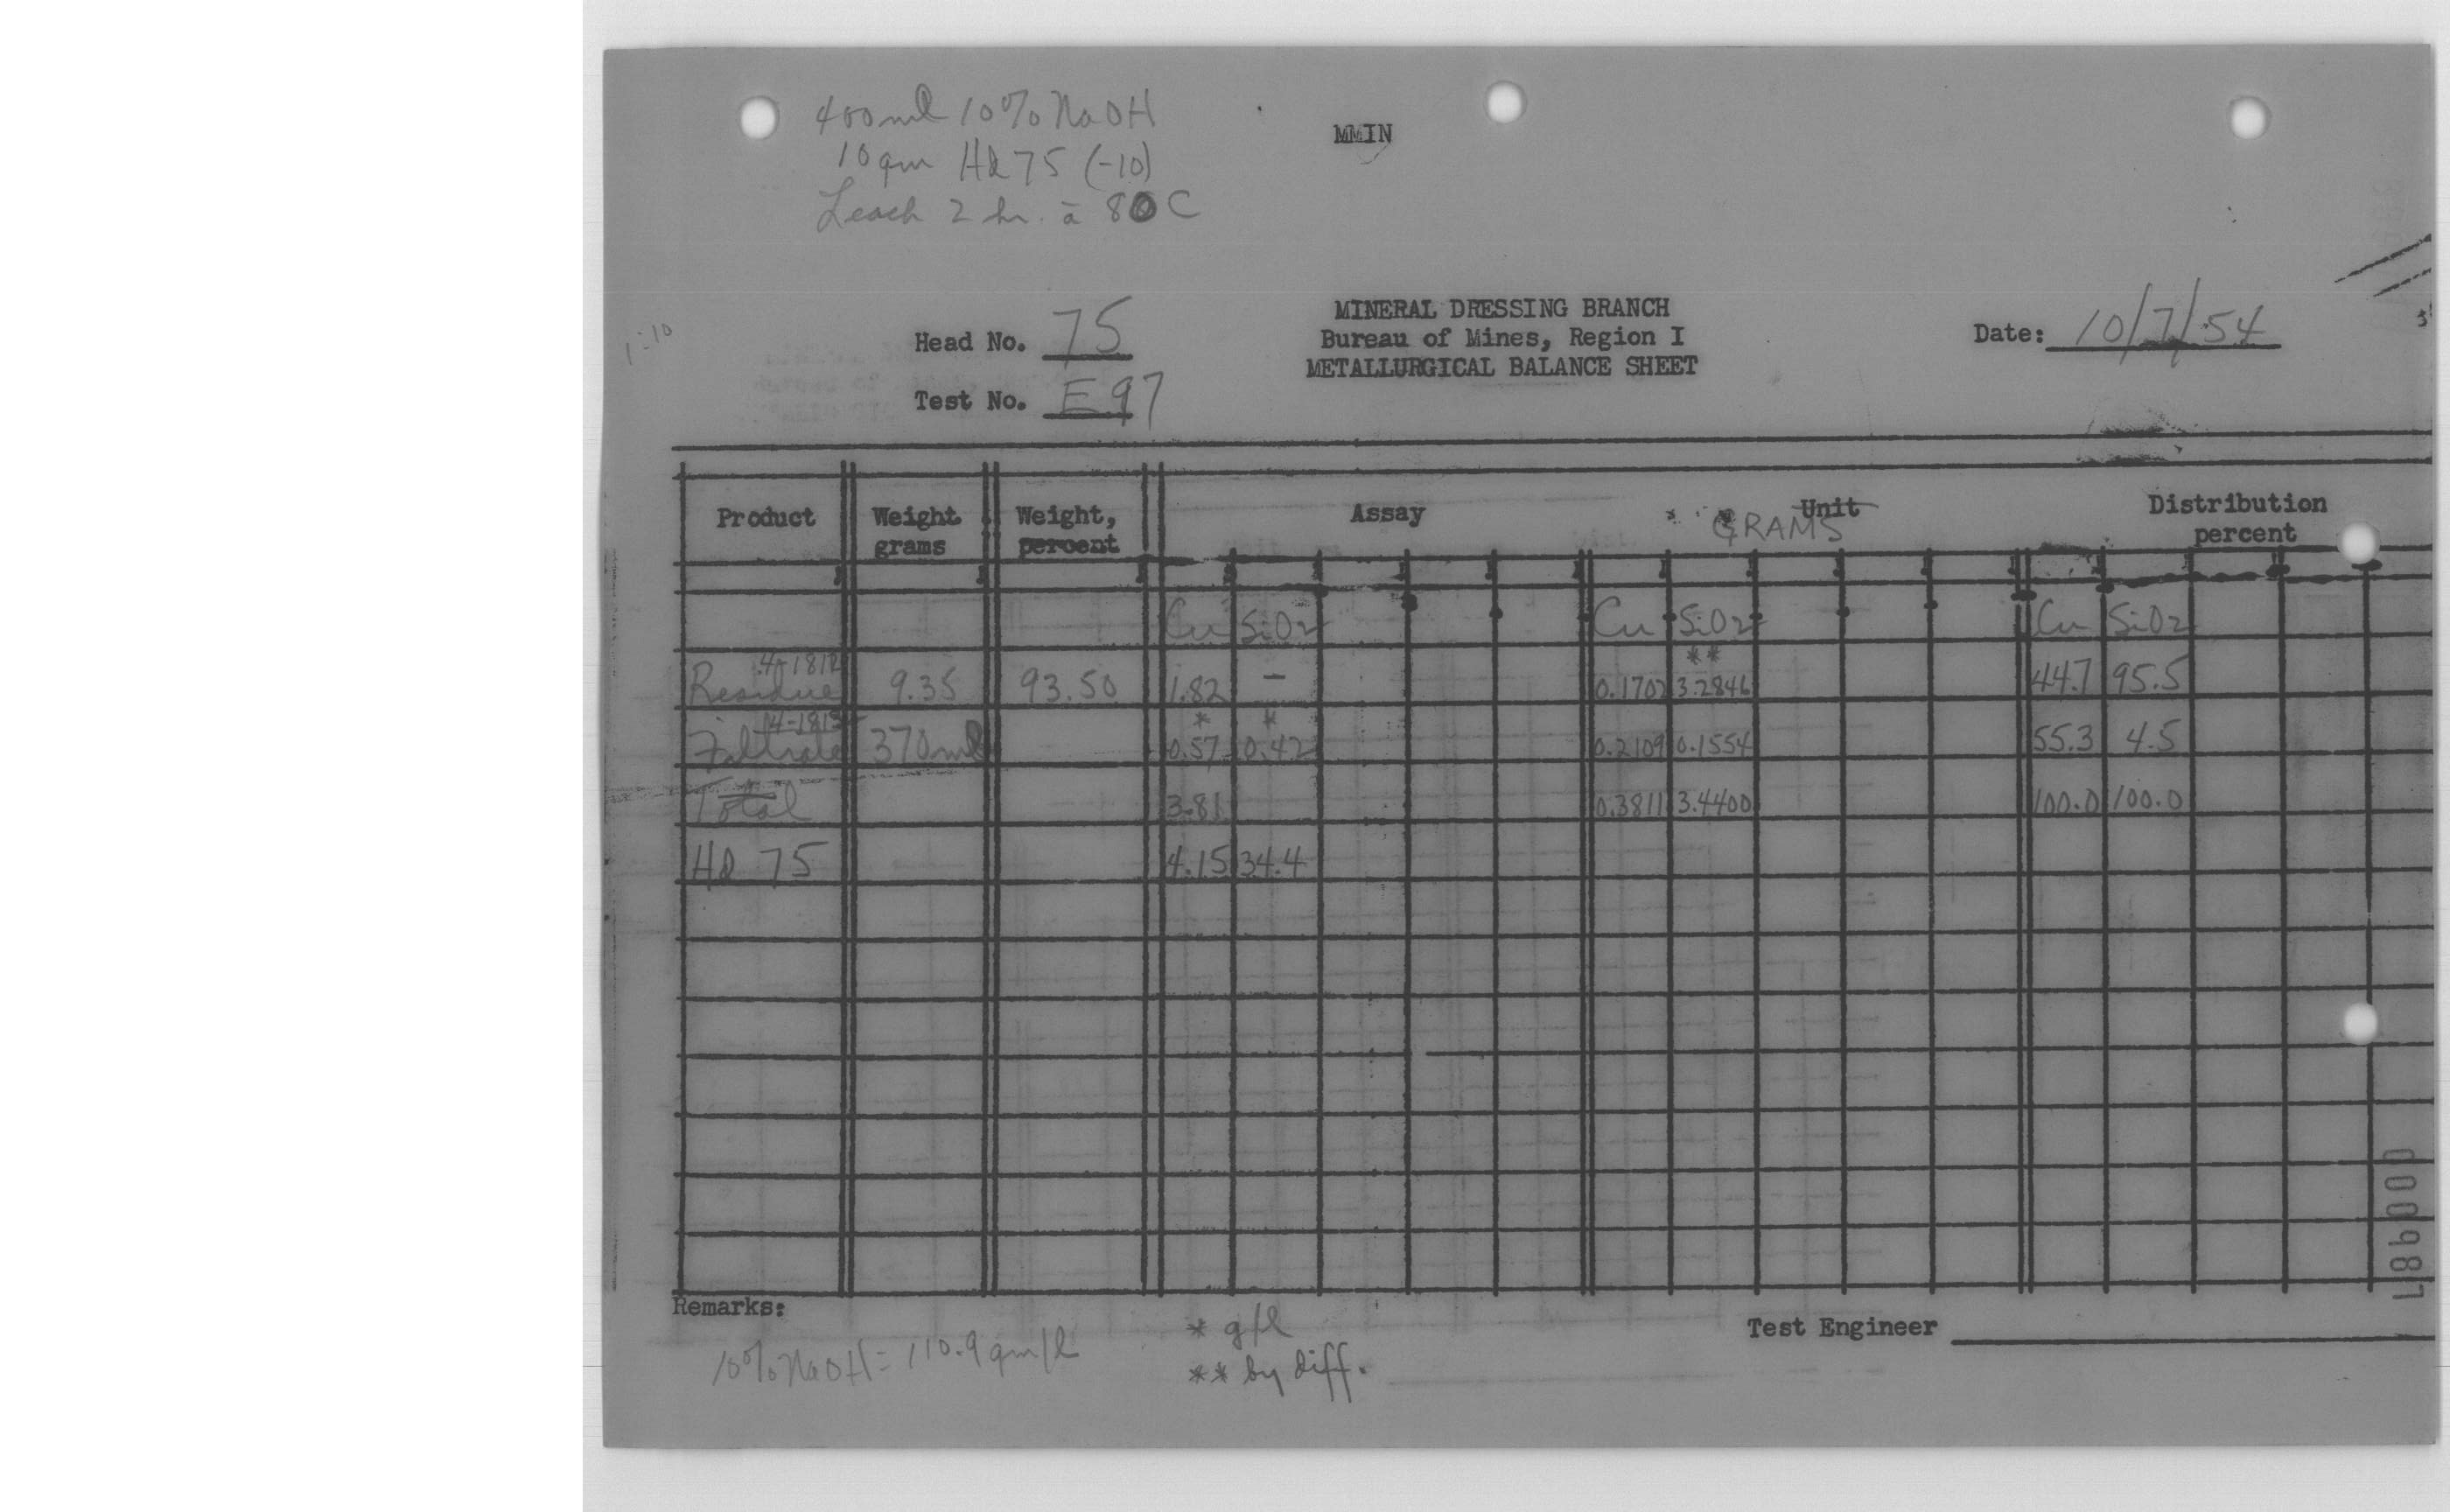 400ml 10% NaOH
10gm Hd 75 (-10)
Leach 2 hr. à 80 C
MMIN
1-10
Head No. 75
Test No. E97
MINERAL DRESSING BRANCH
Bureau of Mines, Region I
METALLURGICAL BALANCE SHEET
Date: 10/7/54
Product Weight grams Weight, percent Assay Unit GRAMS Distribution percent
Cu SiO2 Cu SiO2 Cu SiO2
4-1812 **
Residue 9.35 93.50 1.82 - 0.1702 3.2846 44.7 95.5
4-1813 * *
Filtrate 370ml 0.57 0.42 0.2109 0.1554 55.3 4.5
Total 3.81 0.3811 3.4400 100.0 100.0
Hd 75 4.15 34.4
Remarks:
10% NaOH = 110.9 gm/l
* g/l
** by diff.
Test Engineer